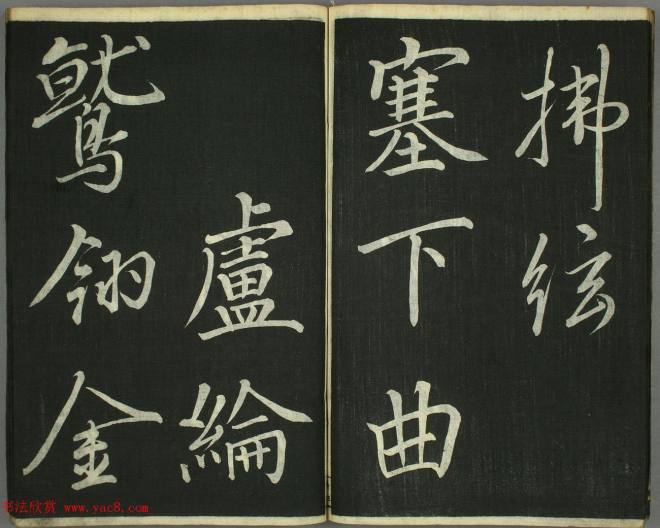 拂弦
塞下曲
盧綸
鷲翎金
书法欣赏 www.yac8.com